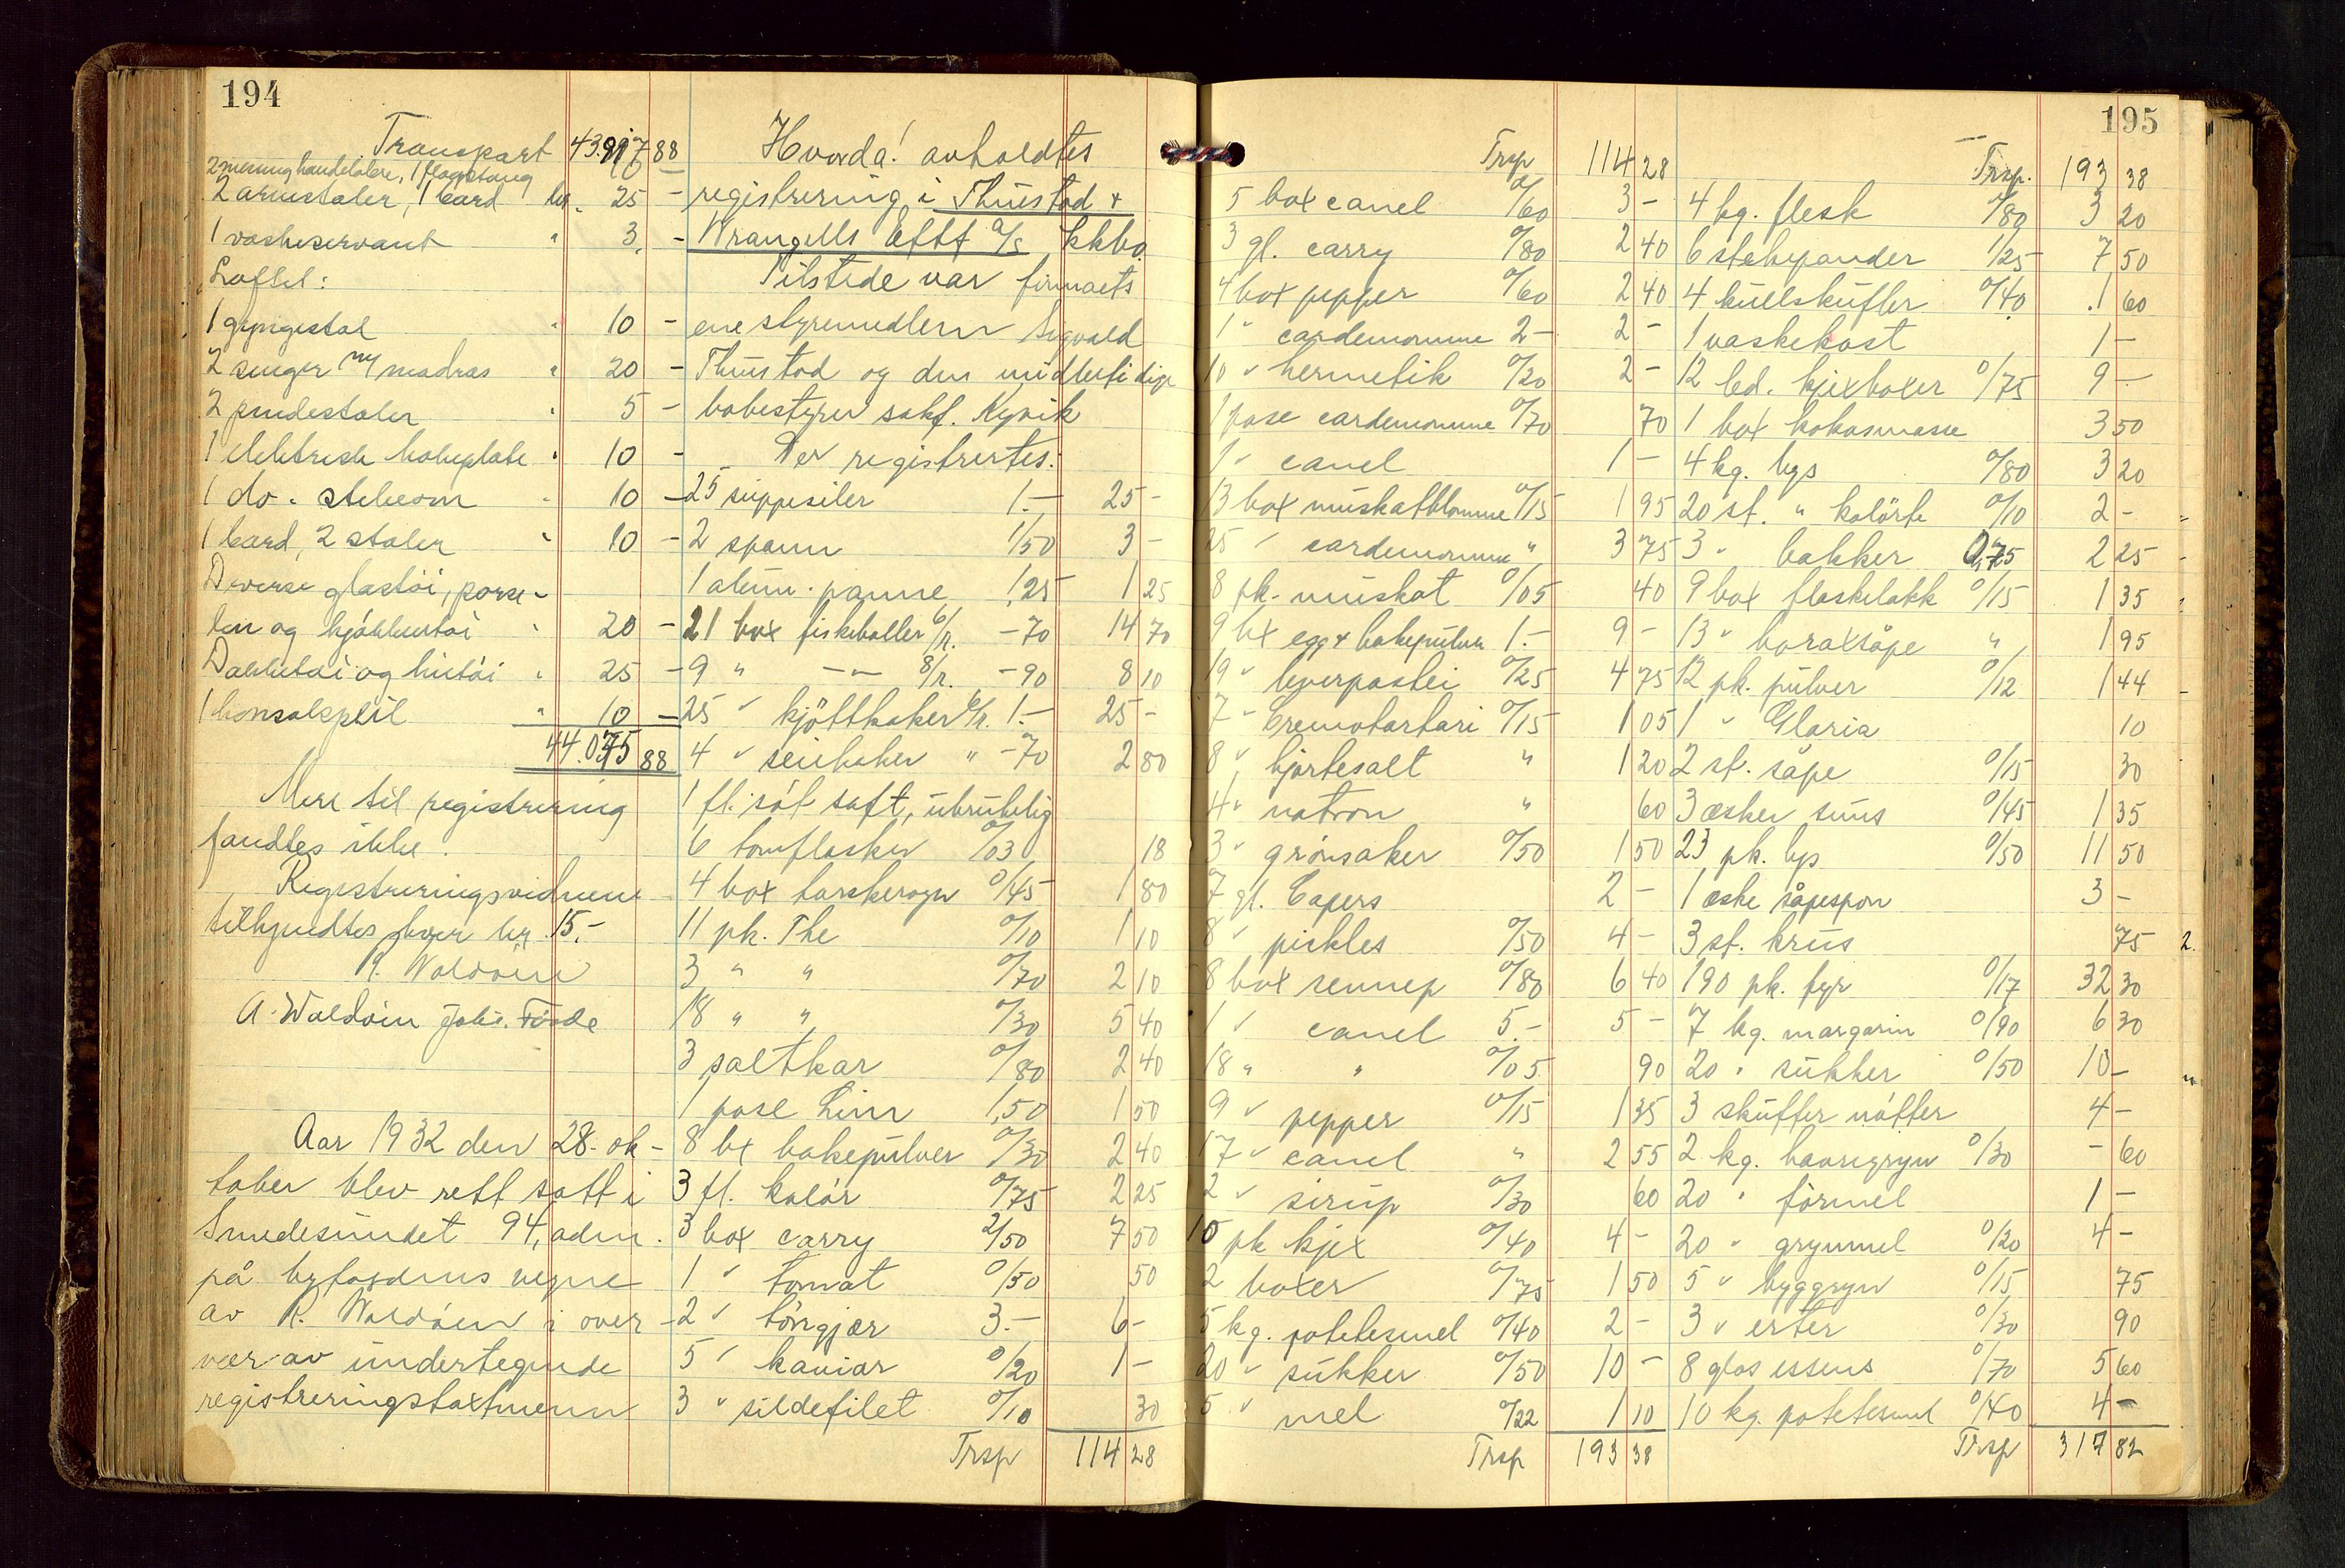 194
Transport 43.917 88
2 messinghandelabre, 1 flagstang 10 -
2 armstoler, 1 bord kr. 25 -
1 vaskeservant " 3. -
Loftet:
1 gyngestol " 10 -
2 senger m/ madras " 20 -
2 pindestoler " 5 -
1 elektrisk kokeplate " 10 -
1 do. stekeovn " 10 -
1 bord, 2 stoler " 10 -
Diverse glastöi, porse-
len og kjökkentöi " 20 -
Dekketöi og lintöi " 25 -
1 konsolspeil " 10 -
44.075 88
Mere til registrering
fandtes ikke.
Registreringsvidnene
tilkjendtes hver kr. 15.-
R. Waldöen
A. Waldöen Johs. Förde
Aar 1932 den 28. ok-
tober blev rett satt i
Smedesundet 94, adm.
på byfogdens vegne
av R. Waldöen i over-
vær av undertegnede
registreringstakstmenn
Hvorda! avholdtes
registrering i Thuestad &
Wrangells Eftf A/S kkbo.
Tilstede var firmaets
ene styremedlem Sigvald
Thuestad og den midlertidige
bobestyrer sakf. Kyvik
Der registrertes:
25 suppesiler 1.- 25 -
2 spann 1/50 3 -
1 alum. panne 1,25 1 25
21 box fiskeboller 6/r. -70 14 70
9 " -"- 8/r. -90 8 10
25 " kjöttkaker 6/r. 1.- 25 -
4 " seikaker " -70 2 80
1 fl. söt saft, ubrukelig
6 tomflasker 0/03 18
4 box torskerogn 0/45 1 80
11 pk. The 0/10 1 10
3 " " 0/70 2 10
18 " " 0/30 5 40
3 saltkar 0/80 2 40
1 pose Lim 1,50 1 50
8 bx bakepulver 0/30 2 40
3 fl. kolör 0/75 2 25
3 box carry 2/50 7 50
1 " tomat 0/50 50
2 " törrgjær 3.- 6 -
5 " kaviar 0/20 1 -
3 " sildefilet 0/10 30
Trsp 114 28
195
Trsp 114 28
5 box canel 0/60 3 -
3 gl. carry 0/80 2 40
4 box pepper 0/60 2 40
1 " cardemomme 2 - 2 -
10 " hermetik 0/20 2 -
1 pose cardemomme 0/70 70
1 " canel 1 -
13 box muskatblomme 0/15 1 95
25 " cardemomme " 3 75
8 pk. muskat 0/05 40
9 bx egg & bakepulver 1.- 9 -
19 " leverpostei 0/25 4 75
7 " Cremotartari 0/15 1 05
8 " hjortesalt " 1 20
4 " natron " 60
3 " grönsaker 0/50 1 50
7 gl. Capers 2 -
8 " pickles 0/50 4 -
8 box sennep 0/80 6 40
1 " canel 5.- 5 -
18 " " 0/05 90
9 " pepper 0/15 1 35
17 " canel " 2 55
2 " sirup 0/30 60
10 pk kjex 0/40 4 -
2 boxer 0/75 1 50
5 kg. potetesmel 0/40 2 -
20 " sukker 0/50 10 -
5 " mel 0/22 1 10
Trsp 193 38
Trsp. 193 38
4 kg. flesk 0/80 3 20
6 stekepander 1/25 7 50
4 kullskufler 0/40 1 60
1 vaskekost 1 -
12 led. kjexboxer 0/75 9 -
1 box kokosmasse 3 50
4 kg. lys 0/80 3 20
20 st. " kolörte 0/10 2 -
3 " bakker 0,75 2 25
9 box flaskelakk 0/15 1 35
13 " boraxsåpe " 1 95
12 pk. pulver 0/12 1 44
1 " Gloria 10
2 st. såpe 0/15 30
3 æsker snus 0/45 1 35
23 pk. lys 0/50 11 50
1 æske såpespon 3 -
3 st. krus 75
190 pk. fyr 0/17 32 30
7 kg. margarin 0/90 6 30
20 " sukker 0/50 10 -
3 skuffer nötter 4 -
2 kg. havregryn 0/30 - 60
20 " formel 1 -
20 " grynmel 0/20 4 -
5 " byggryn 0/15 75
3 " erter 0/30 90
8 glas essens 0/70 5 60
10 kg. potetesmel 0/40 4 -
Trsp 317 82